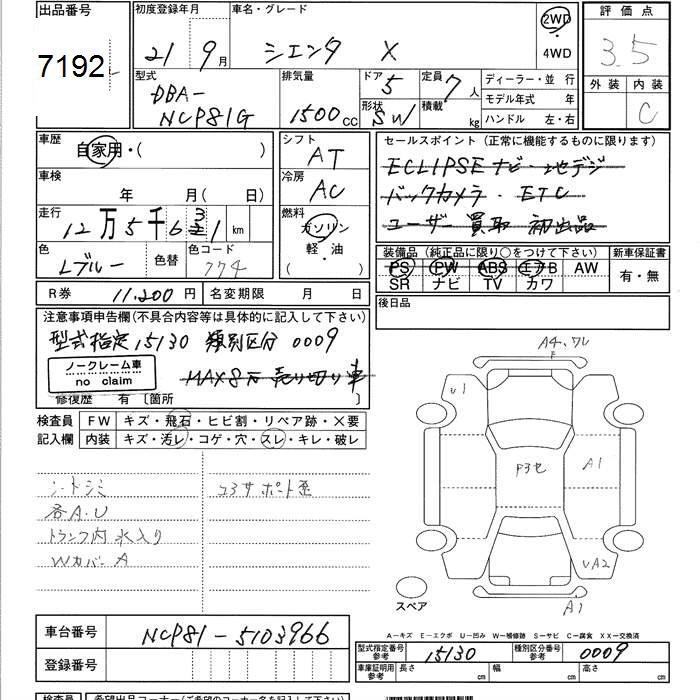 出品番号
7192
初度登録年月
21 9月
車名・グレード
シエンタ X
2WD
4WD
評価点
3.5
外装 内装
C
型式
DBA-
NCP81G
排気量
1500 cc
ドア 5
形状 SW
定員 7人
積載 kg
ディーラー・並行
モデル年式 年
ハンドル 左・右
車歴
自家用・( )
車検
年 月( 日)
走行
12万5千6 3 1 km
色
Lブルー
色替
色コード
774
シフト
AT
冷房
AC
燃料
ガソリン
軽・油
( )
セールスポイント(正常に機能するものに限ります)
ECLIPSEナビ・地デジ
バックカメラ・ETC
ユーザー買取 初出品
装備品(純正品に限り○をつけて下さい)
新車保証書
PS PW ABS エアB AW
SR ナビ TV カワ
有・無
R券 11,200円
名変期限 月 日
後日品
注意事項申告欄(不具合内容等は具体的に記入して下さい)
型式指定 15130 類別区分 0009
ノークレーム車
no claim
MAX8万 売り切り車
修復歴 有〔箇所 〕
検査員
記入欄
FW キズ・飛石・ヒビ割・リペア跡・×要
内装 キズ・汚レ・コゲ・穴・スレ・キレ・破レ
シートシミ
各A.U
トランク内 水入り
Wカバー A
コアサポート歪
A4.ワレ
U1
P3セ
A1
UA2
A1
スペア
A−キズ E−エクボ U−凹み W−補修跡 S−サビ C−腐食 XX−交換済
車台番号
NCP81-5103966
登録番号
型式指定番号
参考
15130
種別区分番号
参考
0009
車庫証明用
参考
長さ cm
幅 cm
高さ cm
検査員
希望出品コーナー(ご希望のコーナー名を記入して下さい)